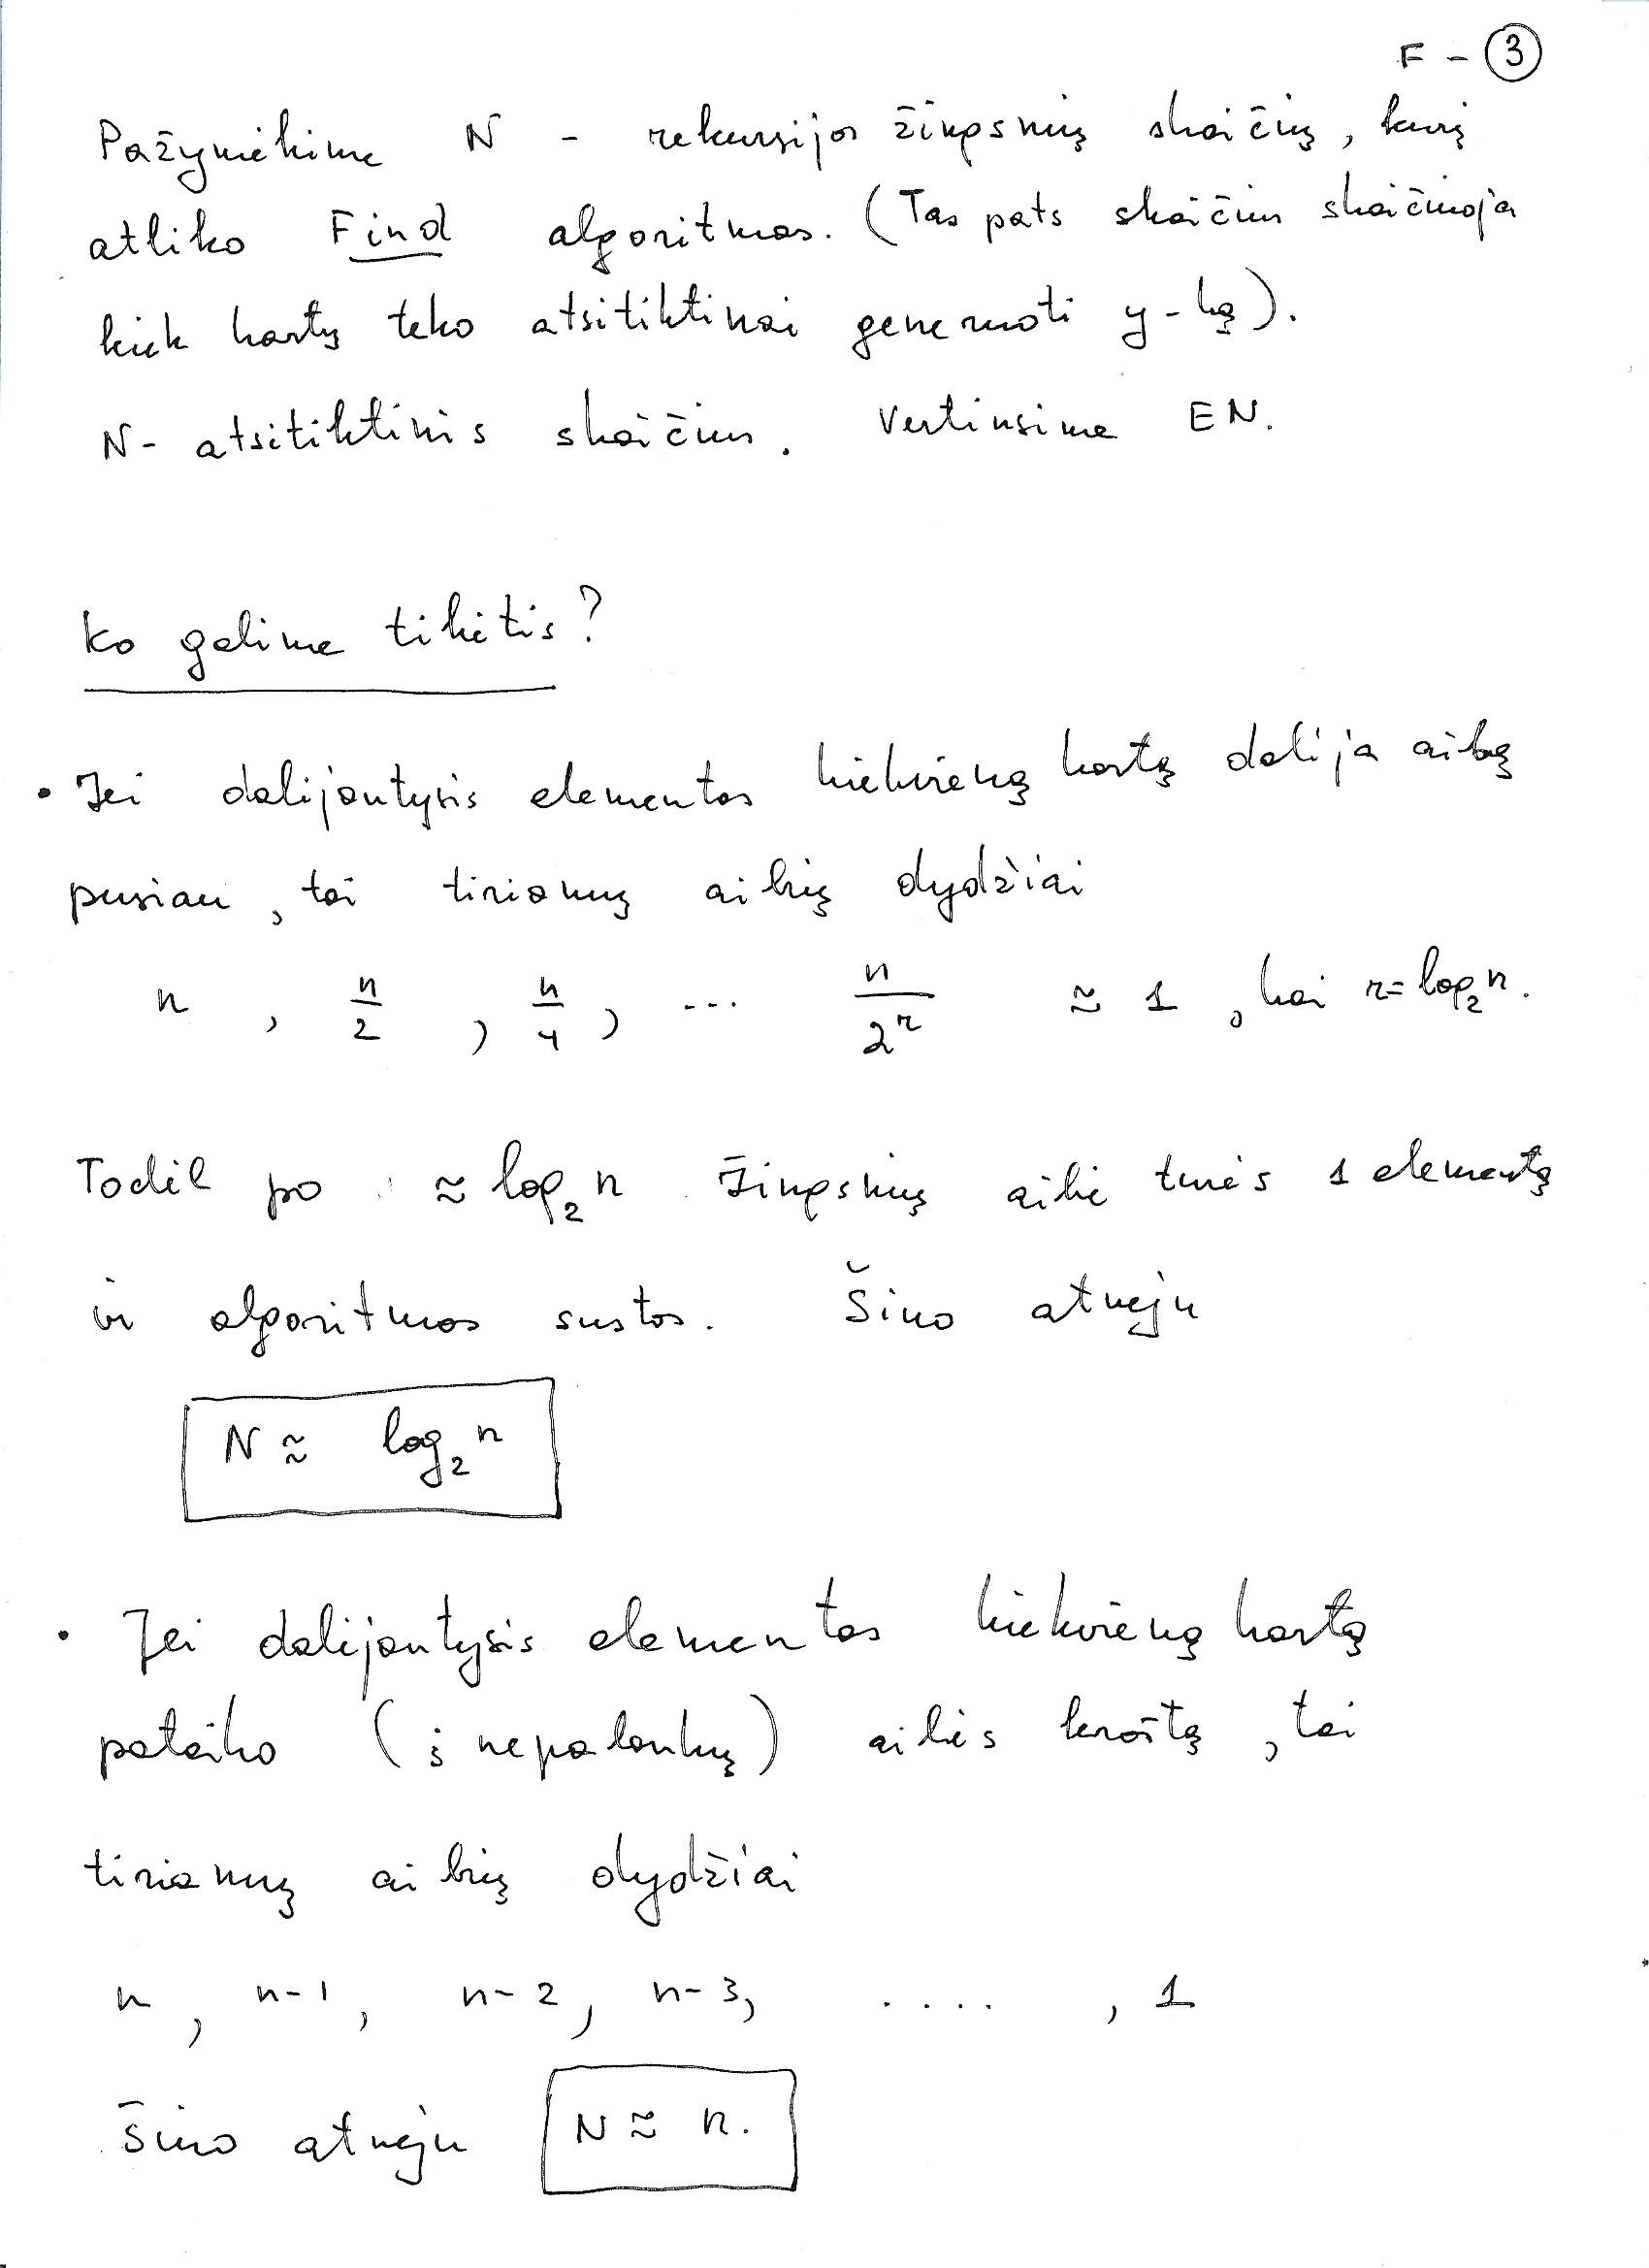 F - ③
Pažymėkime N - rekursijos žingsnių skaičių, kurį
atliko Find algoritmas. (Tas pats skaičius skaičiuoja
kiek kartų teko atsitiktinai generuoti y-ką).
N - atsitiktinis skaičius. Vertinsime EN.
Ko galime tikėtis?
• Jei dalijantysis elementas kiekvieną kartą dalija aibę
pusiau, tai tiriamų aibių dydžiai
n, n/2, n/4, ... n/2^r ≈ 1, kai r = log₂n.
Todėl po ≈ log₂ n žingsnių aibė turės 1 elementą
ir algoritmas sustos. Šiuo atveju
N ≈ log₂ n
• Jei dalijantysis elementas kiekvieną kartą
pataiko (į nepalankų) aibės kraštą, tai
tiriamų aibių dydžiai
n, n-1, n-2, n-3, ...., 1
Šiuo atveju N ≈ n.